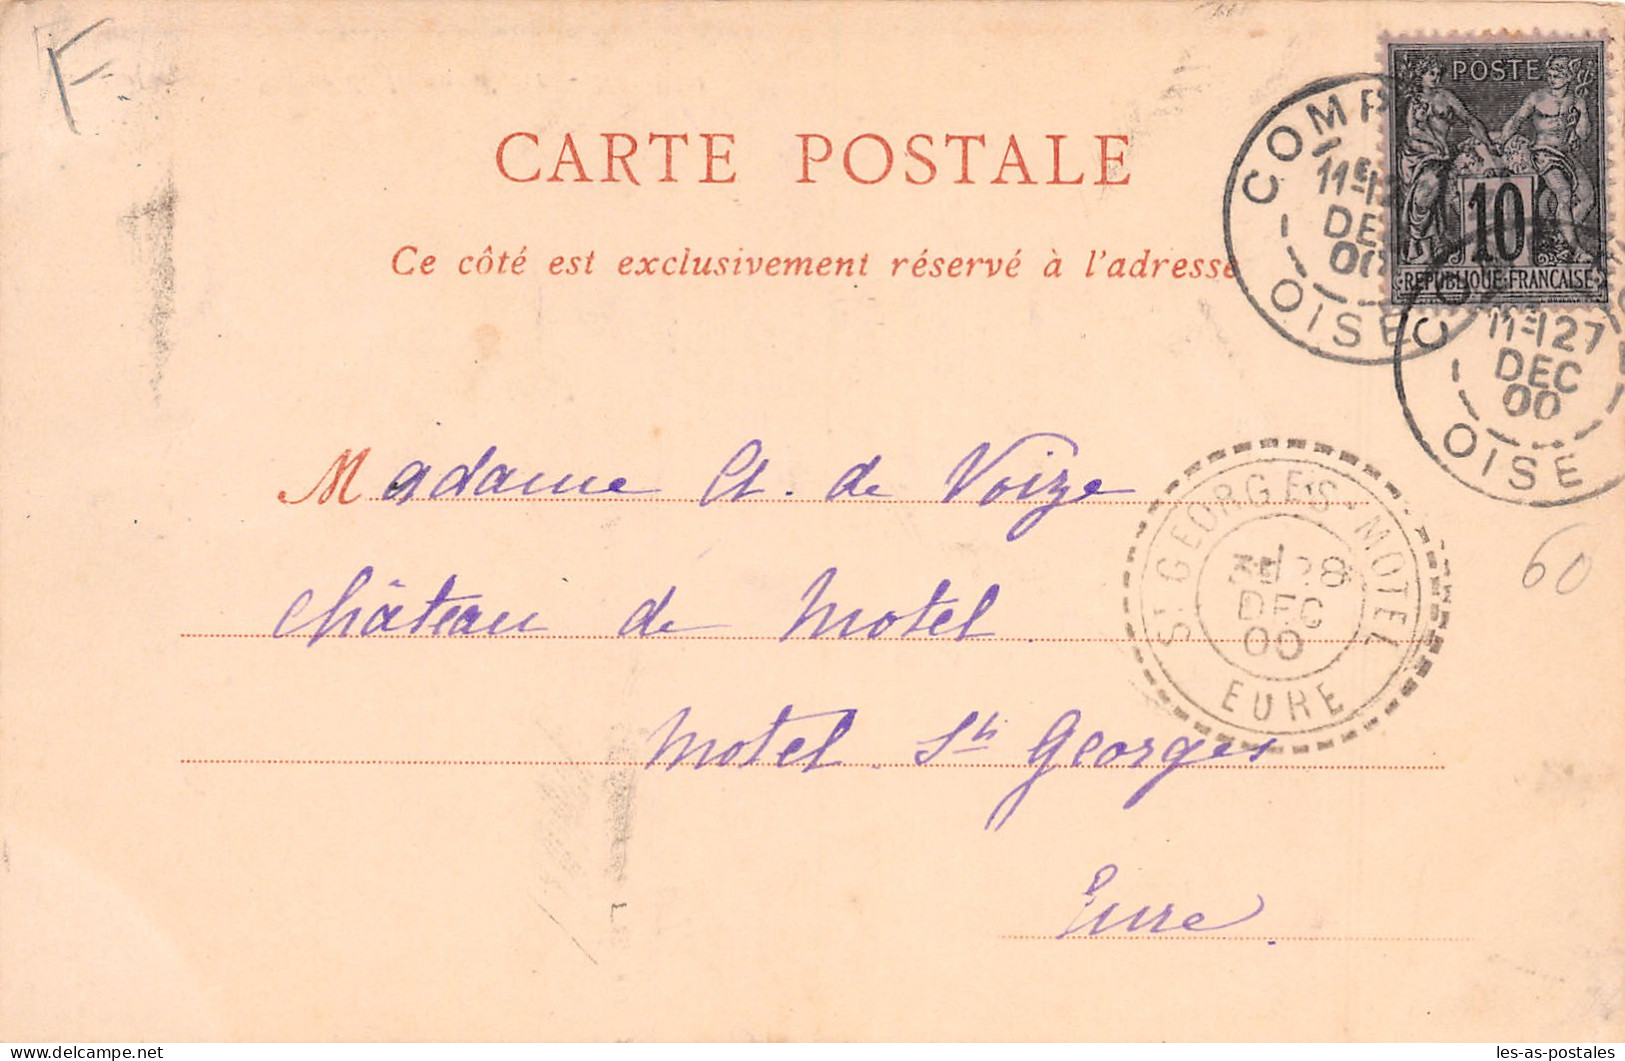 F
POSTE
10
REPUBLIQUE FRANÇAISE
COMP
11E
DE
00
OISE
11E 27
DEC
00
OISE
CARTE POSTALE
Ce côté est exclusivement réservé à l'adresse
Madame Ct. de Voize
Château de Motel
Motel St Georges
Eure.
ST GEORGES-MOTEL
28
DEC
00
EURE
60
les-as-postales